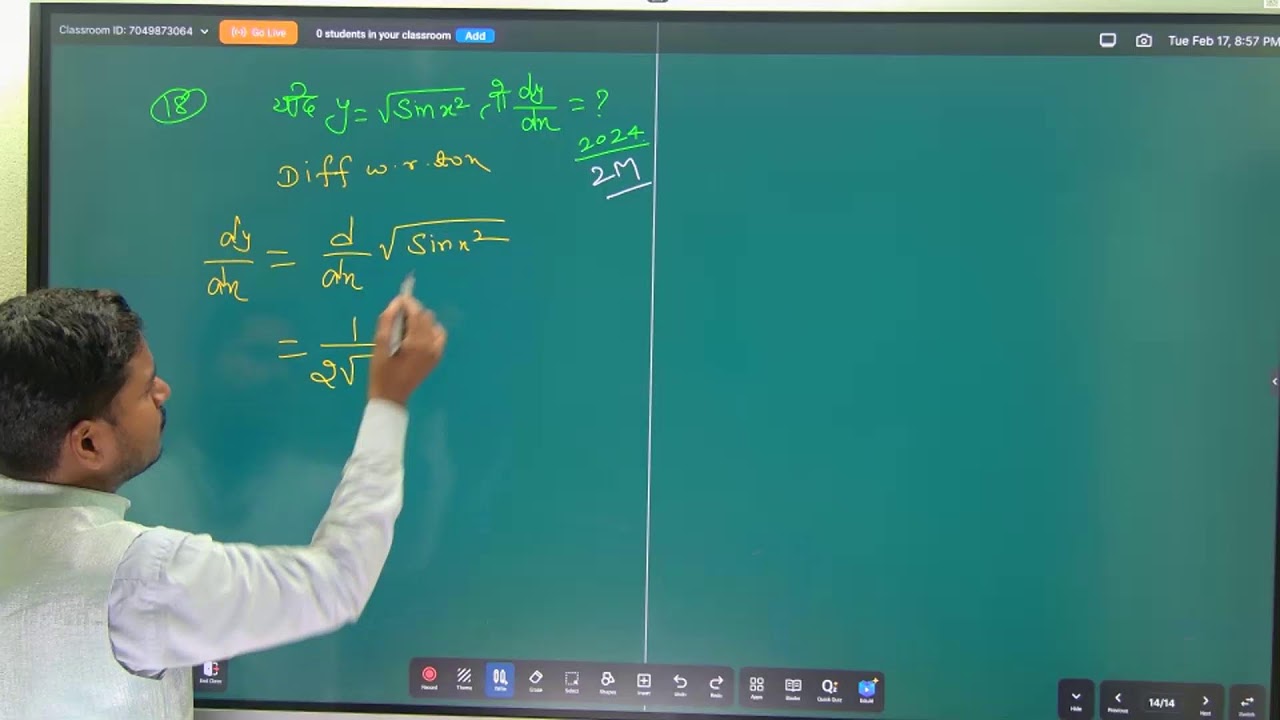 Classroom ID: 7049873064 Go Live 0 students in your classroom Add Tue Feb 17, 8:57 PM
18 यदि y = √Sin x² , तो dy/dx = ?
2024
2M
Diff w.r.to x
dy/dx = d/dx √Sin x²
= 1/2√
End Class Record Theme Write Erase Select Shapes Insert Undo Redo Apps Books Quick Quiz Hide Previous 14/14 Next Switch